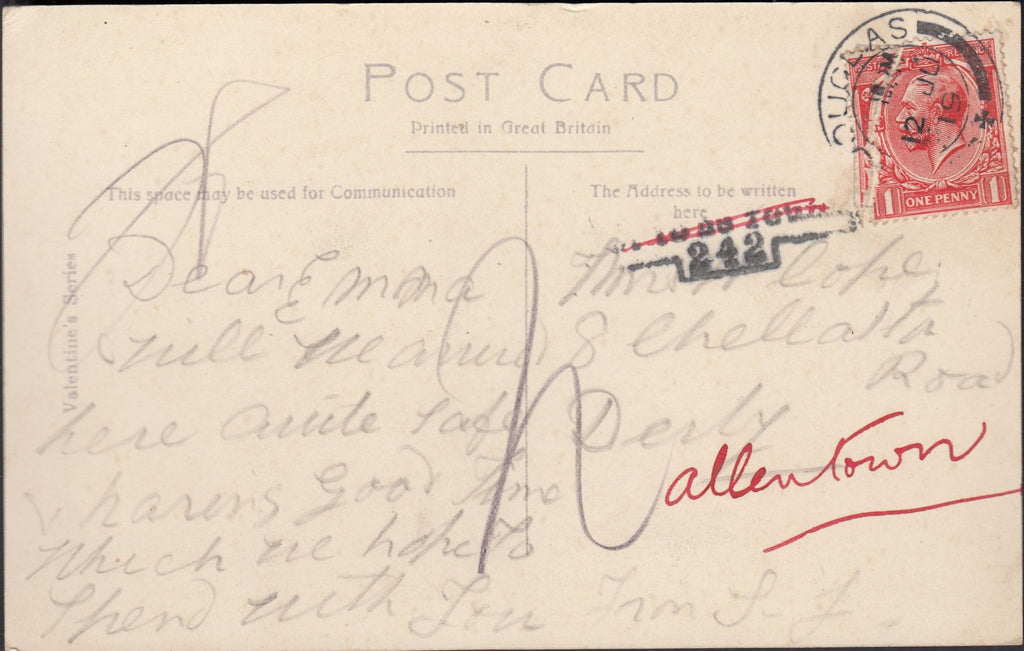 POST CARD
Printed in Great Britain
This space may be used for Communication
The Address to be written
here
Valentine's Series
DOUGLAS
12 JU
19
1 ONE PENNY 1
242
Dear Emma
will we arrived
here quite safe
having Good Time
which we hope to
Spend with You From S. J.
Miss Cope
8
Road
Derby
allentown